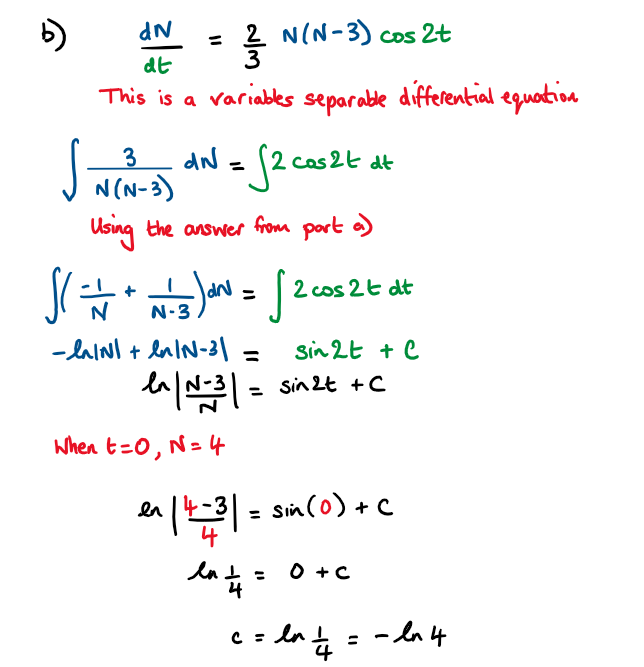 b) dN/dt = 2/3 N(N-3) cos 2t
This is a variables separable differential equation
∫ 3/(N(N-3)) dN = ∫ 2 cos 2t dt
Using the answer from part a)
∫(-1/N + 1/(N-3)) dN = ∫ 2 cos 2t dt
-ln|N| + ln|N-3| = sin 2t + C
ln|(N-3)/N| = sin 2t + C
When t=0, N=4
ln|(4-3)/4| = sin(0) + C
ln 1/4 = 0 + C
c = ln 1/4 = -ln 4